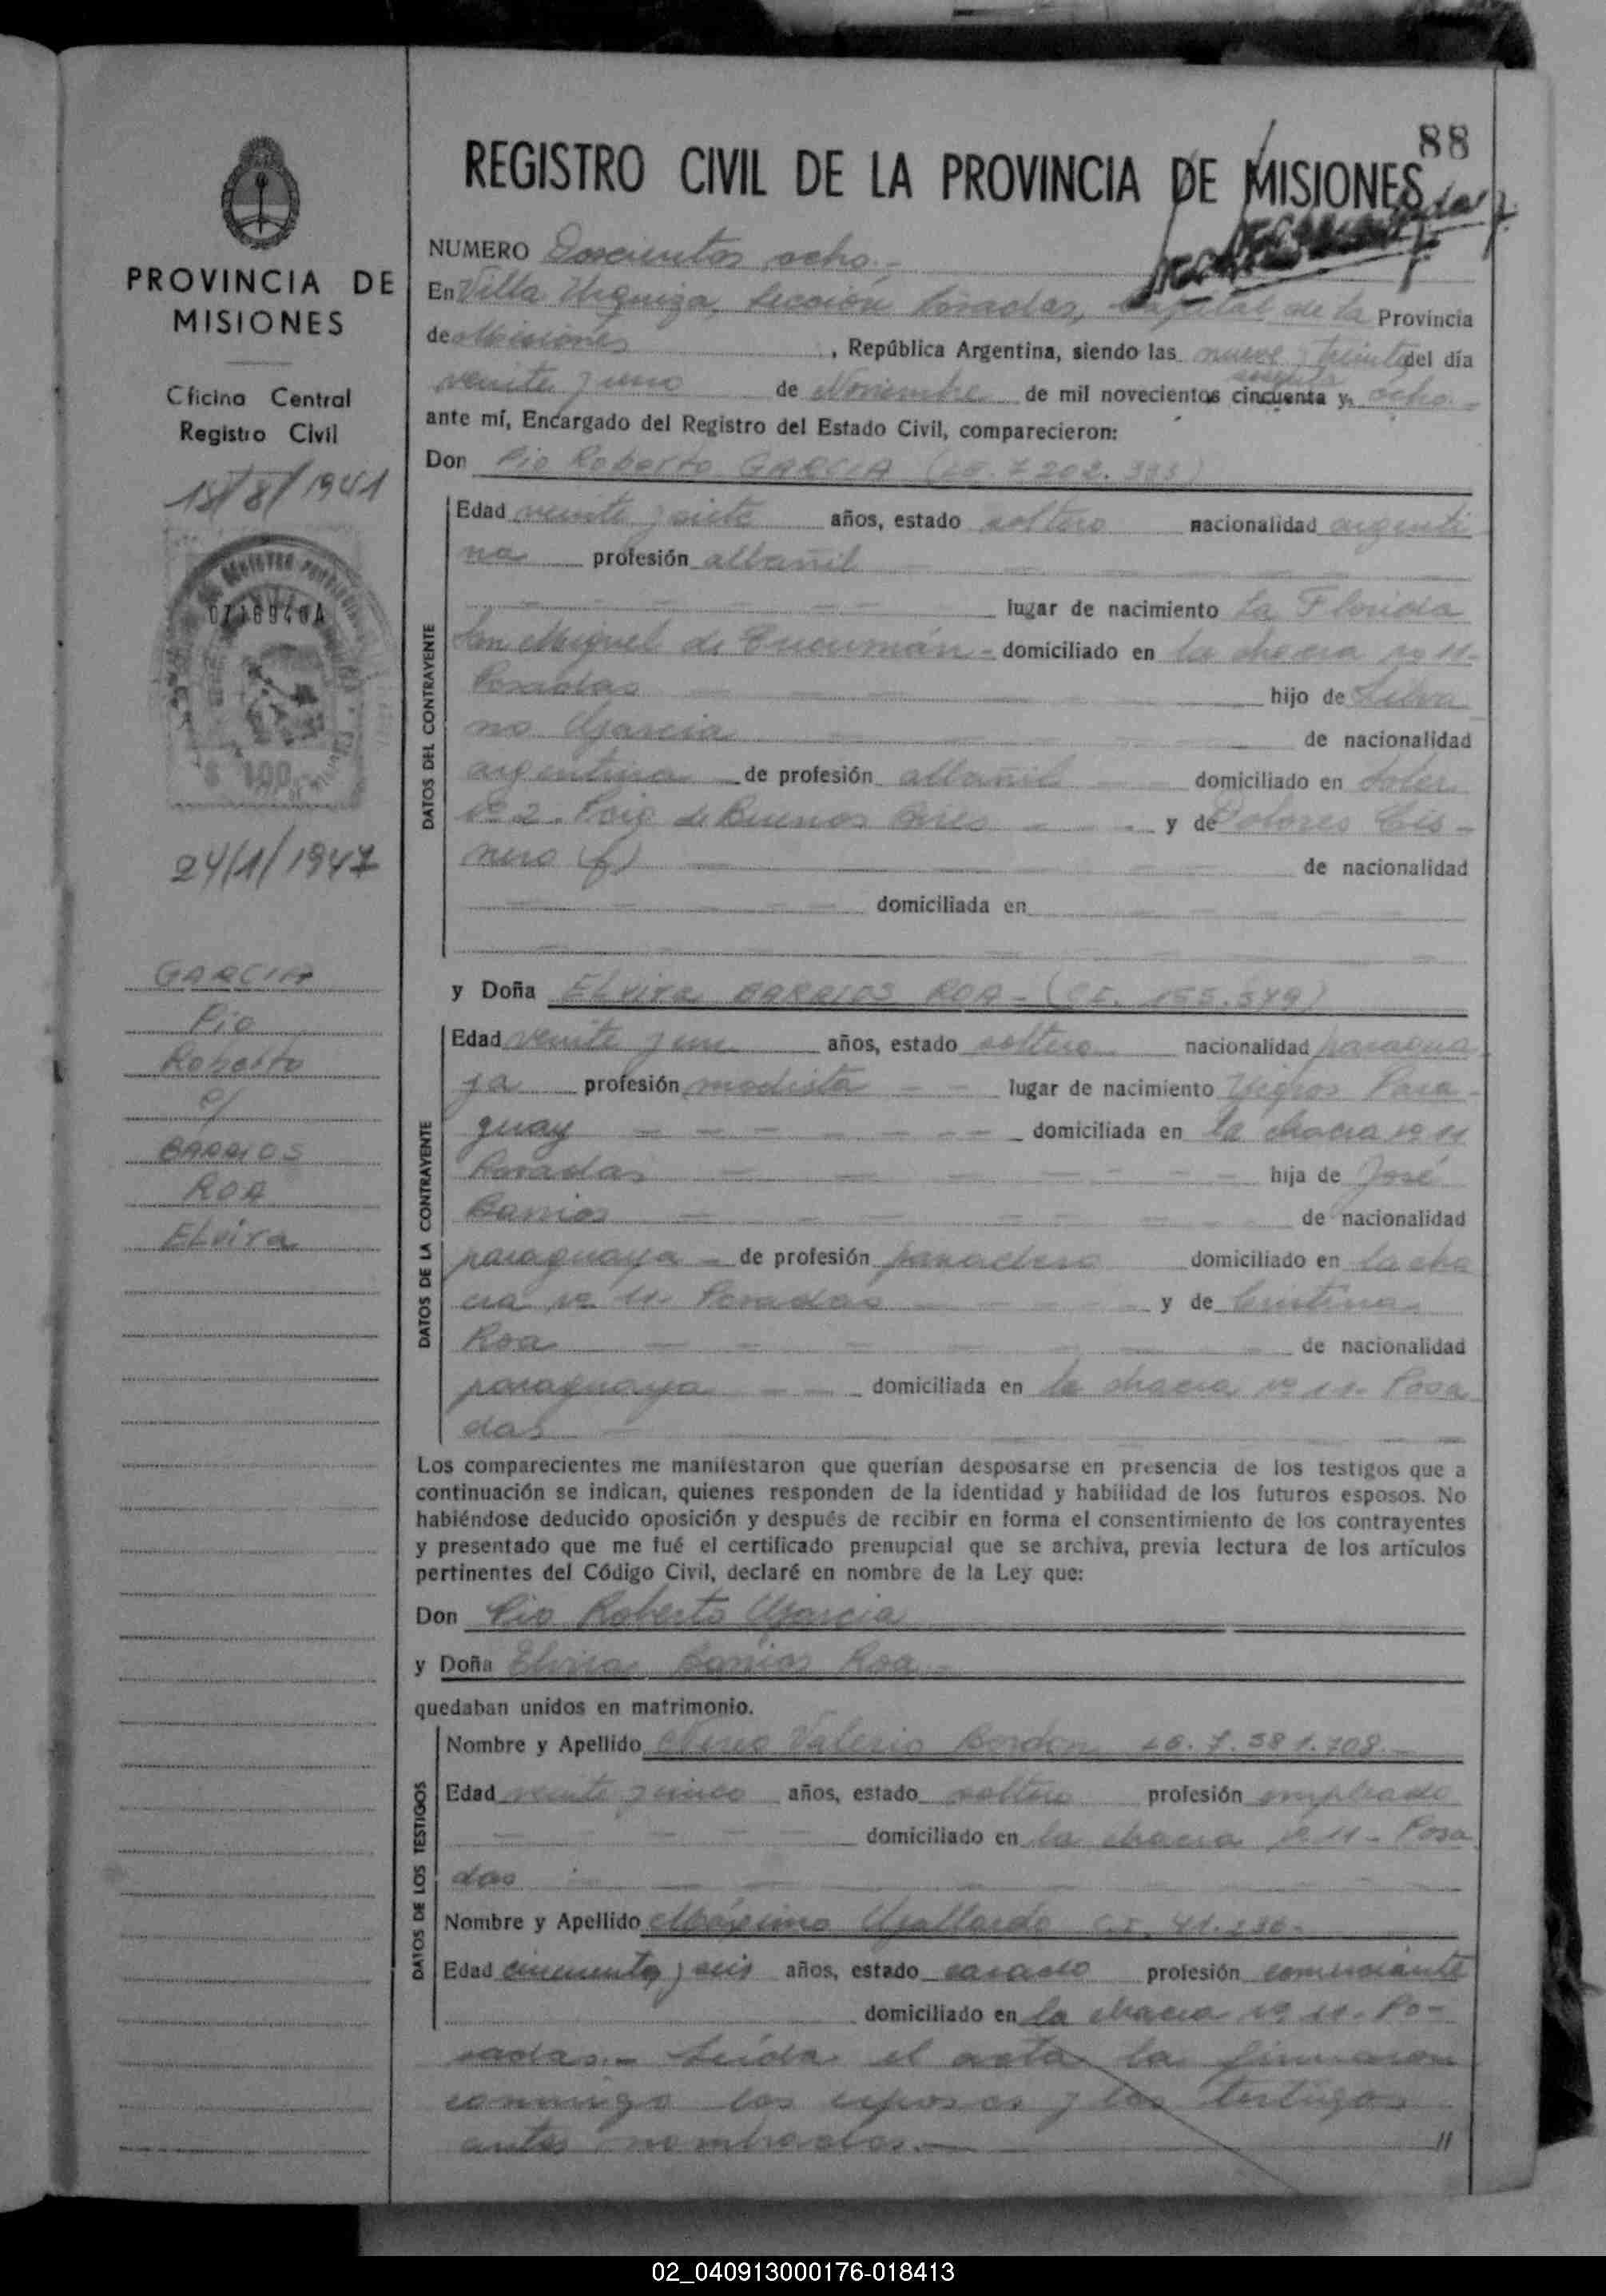 88
REGISTRO CIVIL DE LA PROVINCIA DE MISIONES
PROVINCIA DE
MISIONES
Oficina Central
Registro Civil
18/8/1941
07189404A
$ 100
24/1/1947
GARCIA
Pio
Roberto
c/
BARRIOS
ROA
ELvira
NUMERO Doscientos ocho.-
En Villa Urquiza, Sección Posadas, Capital de la Provincia
de Misiones , República Argentina, siendo las nueve y treinta del día
veinte y uno de Noviembre de mil novecientos cincuenta y sesenta ocho.-
ante mí, Encargado del Registro del Estado Civil, comparecieron:
Don Pio Roberto GARCIA (LE. 7 202. 383)
DATOS DEL CONTRAYENTE
Edad veinte y siete años, estado soltero nacionalidad argenti
na profesión albañil
lugar de nacimiento La Florida
San Miguel de Tucumán - domiciliado en la chacra nº 11-
Posadas hijo de Silva
no Garcia de nacionalidad
argentina de profesión albañil domiciliado en Soler
nº 2. Pcia de Buenos Aires y de Dolores Cis-
nero (f) de nacionalidad
domiciliada en
y Doña ELvira BARRIOS ROA - (CI. 155.579)
DATOS DE LA CONTRAYENTE
Edad veinte y un años, estado soltera nacionalidad paragua
ya profesión modista lugar de nacimiento Para-
guay domiciliada en la chacra nº 11
Posadas hija de José
Barrios de nacionalidad
paraguaya de profesión panadero domiciliado en la cha
cra nº 11- Posadas y de Cristina
Roa de nacionalidad
paraguaya domiciliada en la chacra nº 11- Posa
das
Los comparecientes me manifestaron que querían desposarse en presencia de los testigos que a
continuación se indican, quienes responden de la identidad y habilidad de los futuros esposos. No
habiéndose deducido oposición y después de recibir en forma el consentimiento de los contrayentes
y presentado que me fué el certificado prenupcial que se archiva, previa lectura de los artículos
pertinentes del Código Civil, declaré en nombre de la Ley que:
Don Pio Roberto Garcia
y Doña Elvira Barrios Roa -
quedaban unidos en matrimonio.
DATOS DE LOS TESTIGOS
Nombre y Apellido Nireo Valerio Bordon LE. 7. 581.708.-
Edad veinte y cinco años, estado soltero profesión empleado
domiciliado en la chacra nº 11 - Posa
das
Nombre y Apellido Máximo Gallardo C.I. 41.236-
Edad cincuenta y seis años, estado casado profesión comerciante
domiciliado en la chacra nº 11. Po-
sadas.- Leída el acta la firmaron
conmigo los esposos y los testigos
antes nombrados.-
//
02_040913000176-018413